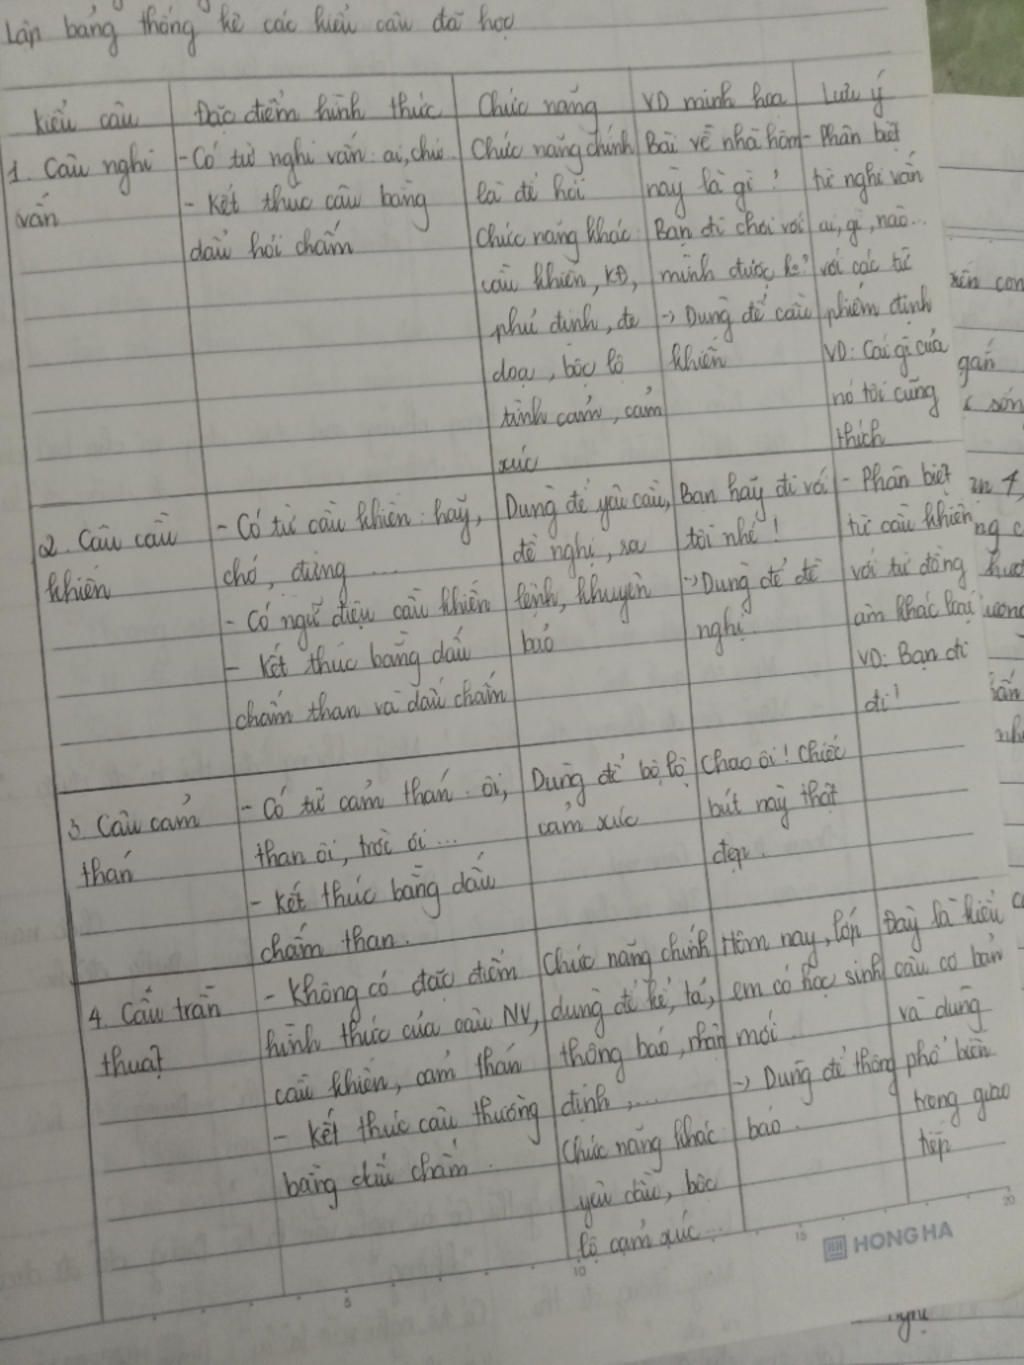 Lập bảng thống kê các kiểu câu đã học
Kiểu câu | Đặc điểm hình thức | Chức năng | VD minh hoa | Lưu ý
1. Câu nghi | - Có từ nghi vấn: ai, chứ.. | Chức năng chính | Bài về nhà hôm | - Phân biệt
vấn | - Kết thúc câu bằng | là để hỏi | này là gì? | từ nghi vấn
dấu hỏi chấm | Chức năng khác: | Bạn đi chơi với | ai, gì, nào...
cầu khiến, KĐ, | mình được ko? | với các từ
phủ định, đe | -> Dùng để cầu | phiếm định
doạ, bộc lộ | khiến | VD: Cái gì của
tình cảm, cảm | nó tôi cũng
xúc | thích
2. Câu cầu | - Có từ cầu khiến: hãy, | Dùng để yêu cầu, | Bạn hãy đi với | - Phân biệt
khiến | chớ, đừng ... | đề nghị, ra | tôi nhé! | từ cầu khiến
- Có ngữ điệu cầu khiến | lệnh, khuyên | -> Dùng để đề | với từ đồng
- Kết thúc bằng dấu | bảo | nghị | âm khác loại
chấm than và dấu chấm | VD: Bạn đi
đi!
3. Câu cảm | - Có từ cảm thán: ôi, | Dùng để bộ lộ | Chao ôi! Chiếc
thán | than ôi, trời ơi ... | cảm xúc | bút này thật
- Kết thúc bằng dấu | đẹp.
chấm than.
4. Câu trần | - Không có đặc điểm | Chức năng chính | Hôm nay, lớp | Đây là kiểu
thuật | hình thức của câu NV, | dùng để kể, tả, | em có học sinh | câu cơ bản
cầu khiến, cảm thán | thông báo, nhận | mới. | và dùng
- Kết thúc câu thường | định,... | -> Dùng để thông | phổ biến
bằng dấu chấm. | Chức năng khác | báo. | trong giao
yêu cầu, bộc | tiếp
lộ cảm xúc...
5 10 15 20
HONG HA